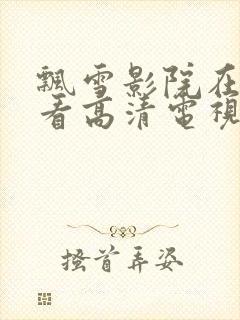 飄雪影院在
看高清電視
搔首弄姿